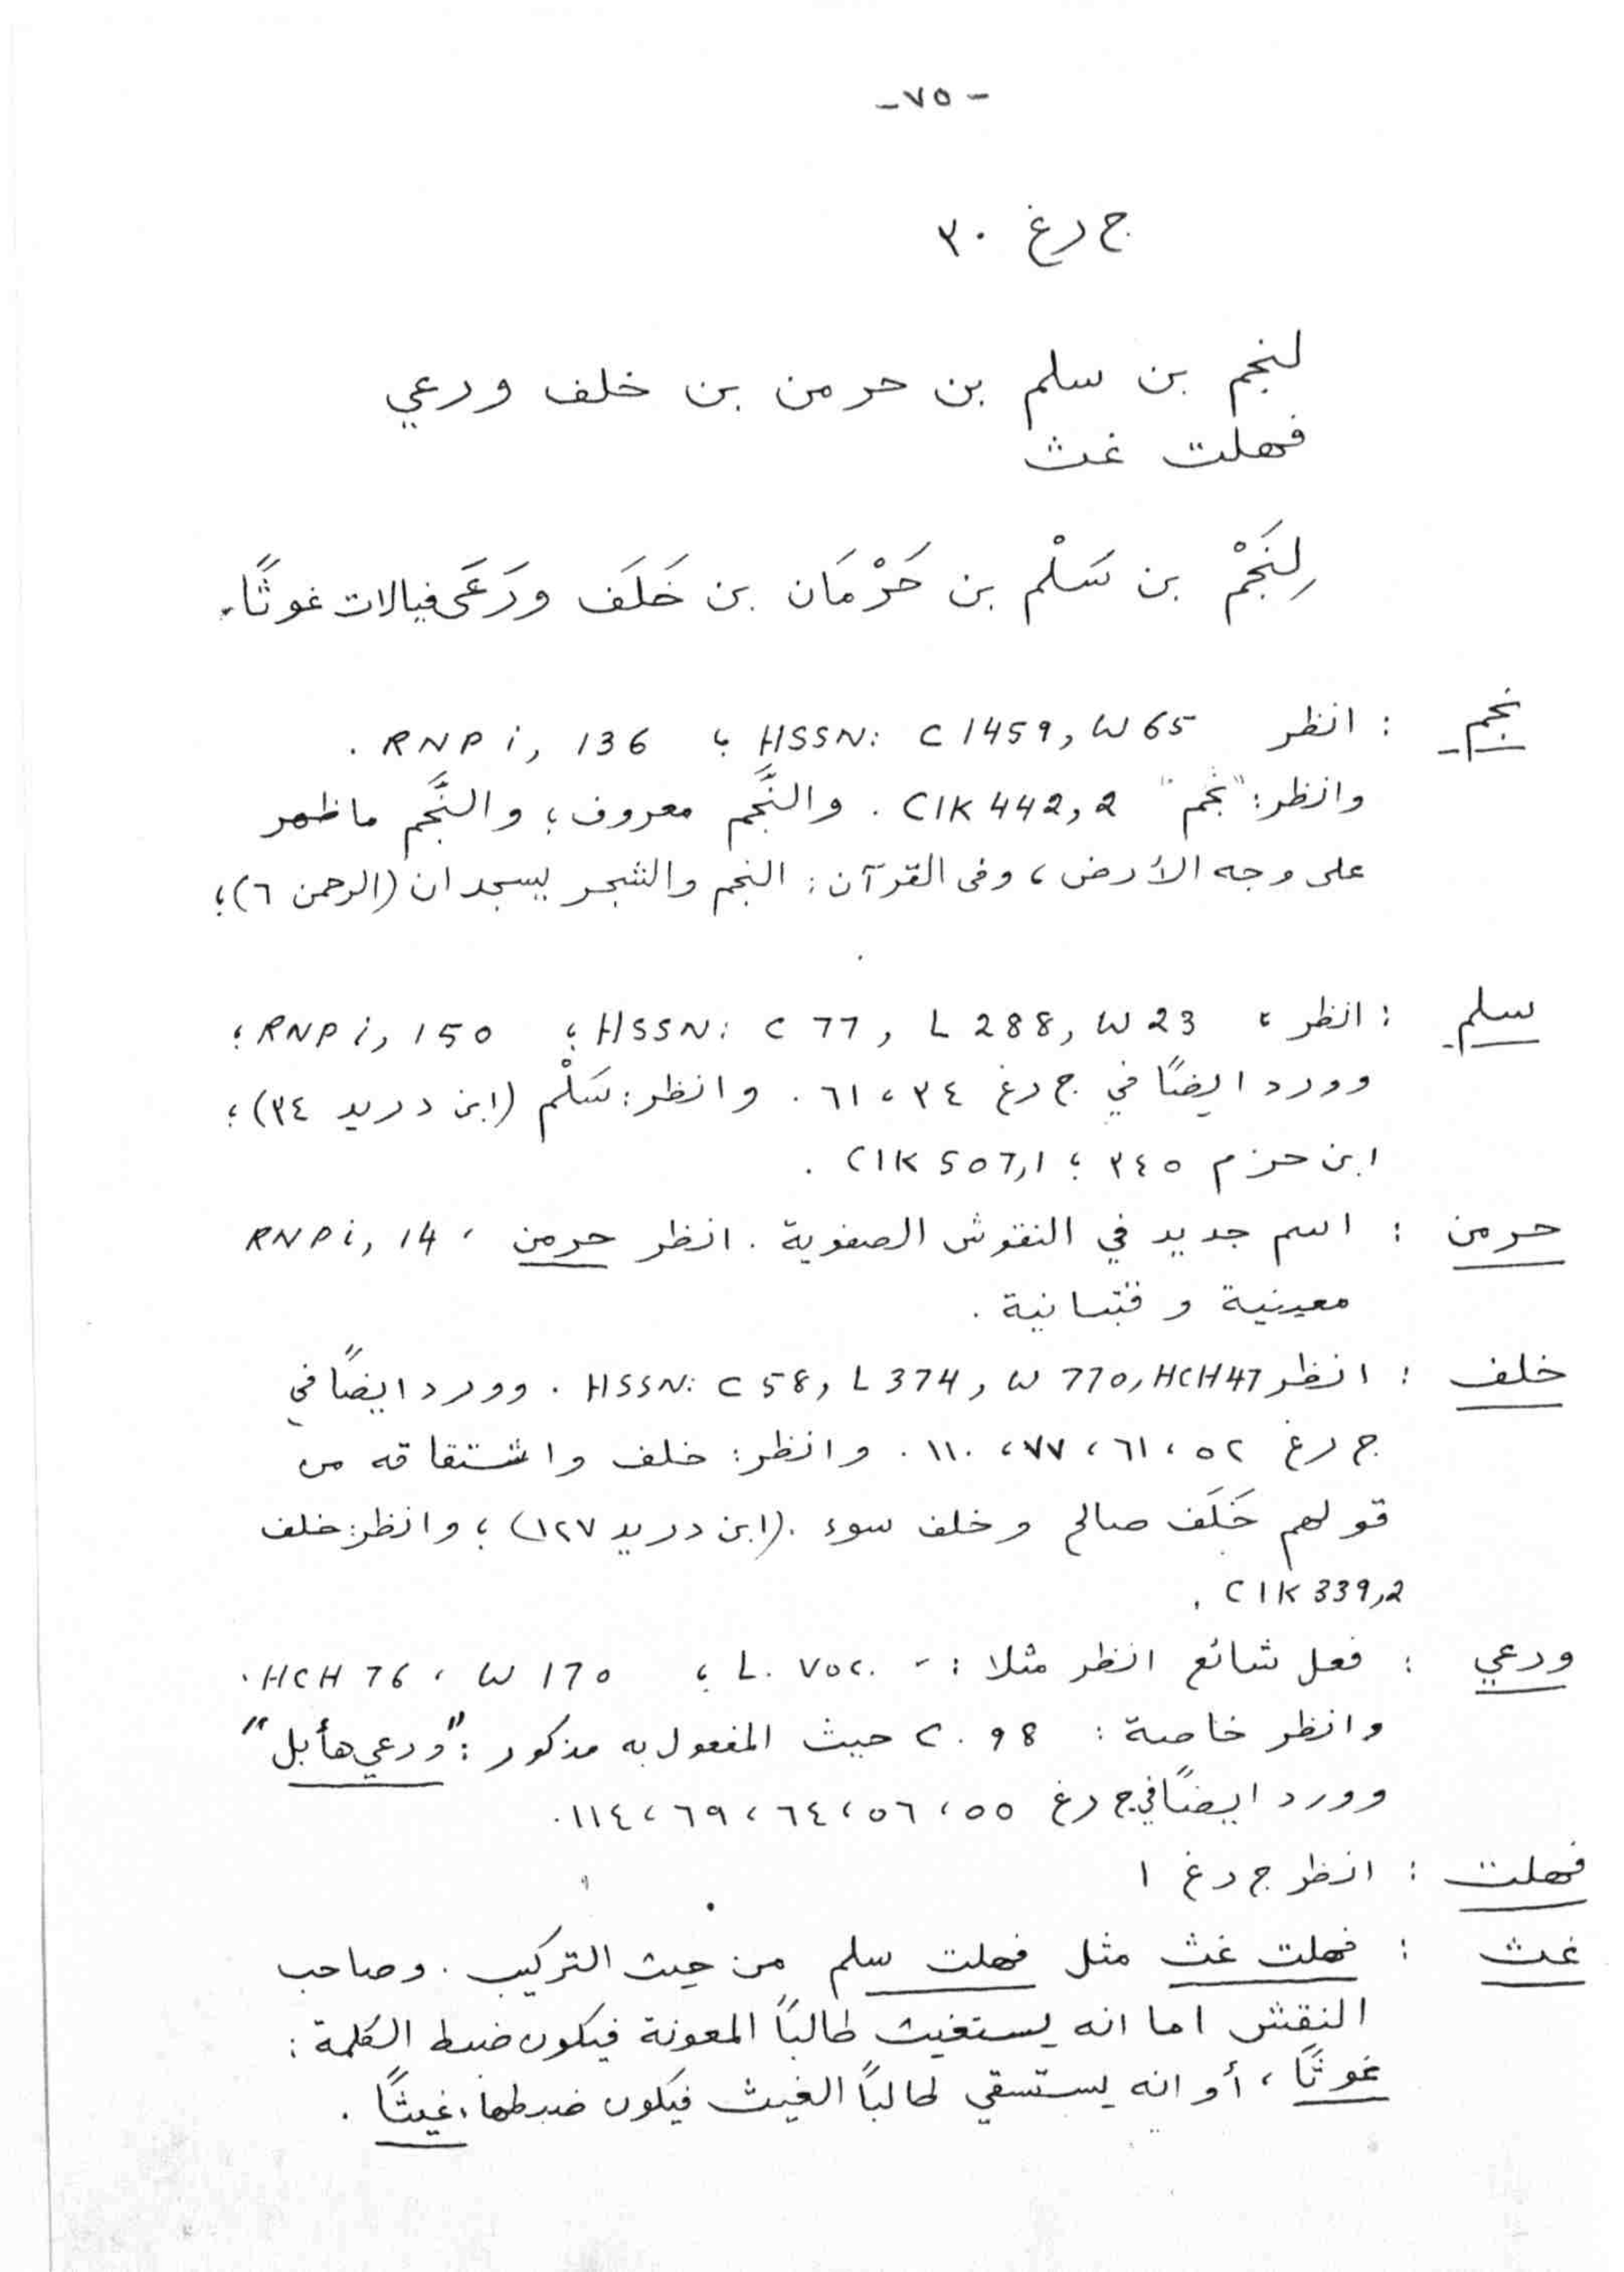 -٧٥-
ج رغ ٣٠
لنجم بن سلم بن حرمن بن خلف ورعي
فهلت غث
لِنَجْم بن سَلْم بن حَرْمَان بن خَلَف ورَعَى فيالات غوثًا.
نجم : انظر HSSN: C 1459, W 65 ؛ RNP i, 136 .
وانظر: "نجم" CIK 442,2 . والنَّجم معروف ؛ والنَّجم ما ظهر
على وجه الأرض ، وفى القرآن : النجم والشجر يسجدان (الرحمن ٦) ؛
سلم : انظر ، HSSN: C 77, L 288, W 23 ؛ RNP i, 150 ؛
وورد ايضًا في ج رغ ٣٤ ، ٦١ . وانظر: سَلْم (ابن دريد ٣٤) ؛
ابن حزم ٣٤٥ ؛ CIK 507,1 .
حرمن : اسم جديد في النقوش الصفوية . انظر حرمن ، RNP i, 14
معينية و قتبانية .
خلف : انظر HSSN: C 58, L 374, W 770, HCH 47 . وورد ايضًا في
ج رغ ٥٢ ، ٦١ ، ٧٧ ، ١١٠ . وانظر: خلف واشتقاقه من
قولهم خَلَف صالح وخلف سوء . (ابن دريد ١٢٧) ؛ وانظر: خلف
CIK 339,2 .
ورعي : فعل شائع انظر مثلا : - L. Voc. ؛ HCH 76 ، W 170 .
وانظر خاصة : C. 98 حيث المفعول به مذكور : "ورعي هأبل"
وورد ايضًا في ج رغ ٥٥ ، ٥٦ ، ٦٤ ، ٦٩ ، ١١٤ .
فهلت : انظر ج رغ ١
غث : فهلت غث مثل فهلت سلم من حيث التركيب . وصاحب
النقش اما انه يستغيث طالبًا المعونة فيكون ضبط الكلمة :
غوثًا ، أو انه يستسقي طالبًا الغيث فيكون ضبطها ، غيثًا .